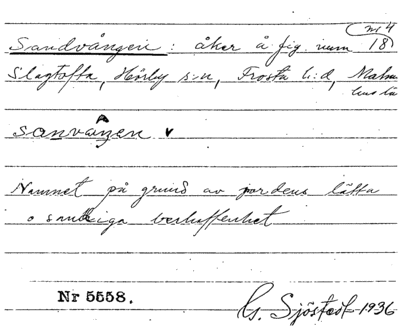 nr 4
Sandvången: åker å fig. num 18)
Slågtofta, Hörby s:n, Frosta h:d, Malmö
hus län
sanvången v
Namnet på grund av jordens lätta
o sandiga beskaffenhet
Nr 5558.
G. Sjöstedt 1936